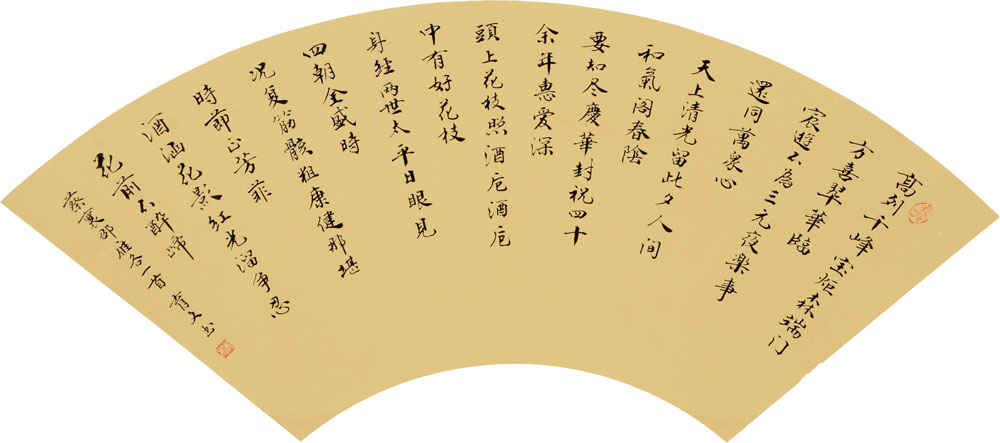 高列千峰宝炬森端门
方喜翠華臨
宸遊不為三元夜樂事
還同萬衆心
天上清光留此夕人间
和氣阁春陰
要知尽慶華封祝四十
余年惠爱深
頭上花枝照酒卮酒卮
中有好花枝
身経两世太平日眼見
四朝全盛時
况复筋骸粗康健那堪
時節正芳菲
酒涵花影红光溜争忍
花前不醉帰
蔡襄邵雍各一首 育文书